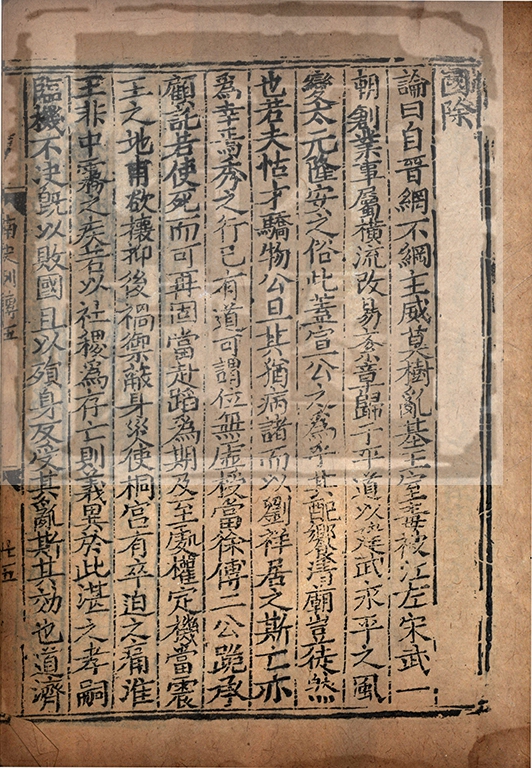 國除
論曰自晉網不綱主威莫樹亂基王室毒被江左宋武一
朝創業事屬橫流改易紊章歸于平道以建武永平之風
變太元隆安之俗此蓋宣公之為乎其配饗清廟豈徒然
也若夫怙才驕物公旦其猶病諸而以劉祥居之斯亡亦
為幸焉秀之行己有道可謂位無虛授當徐傅二公跪承
顧託若使死而可再固當赴蹈為期及至處權定機當震
主之地甫欲攘抑後禍禦蔽身災使桐宮有卒迫之痛淮
王非中霧之疾若以社稷為存亡則義異於此湛之孝嗣
臨機不決既以敗國且以殞身反受其亂斯其効也道濟
南史列傳五
廿五